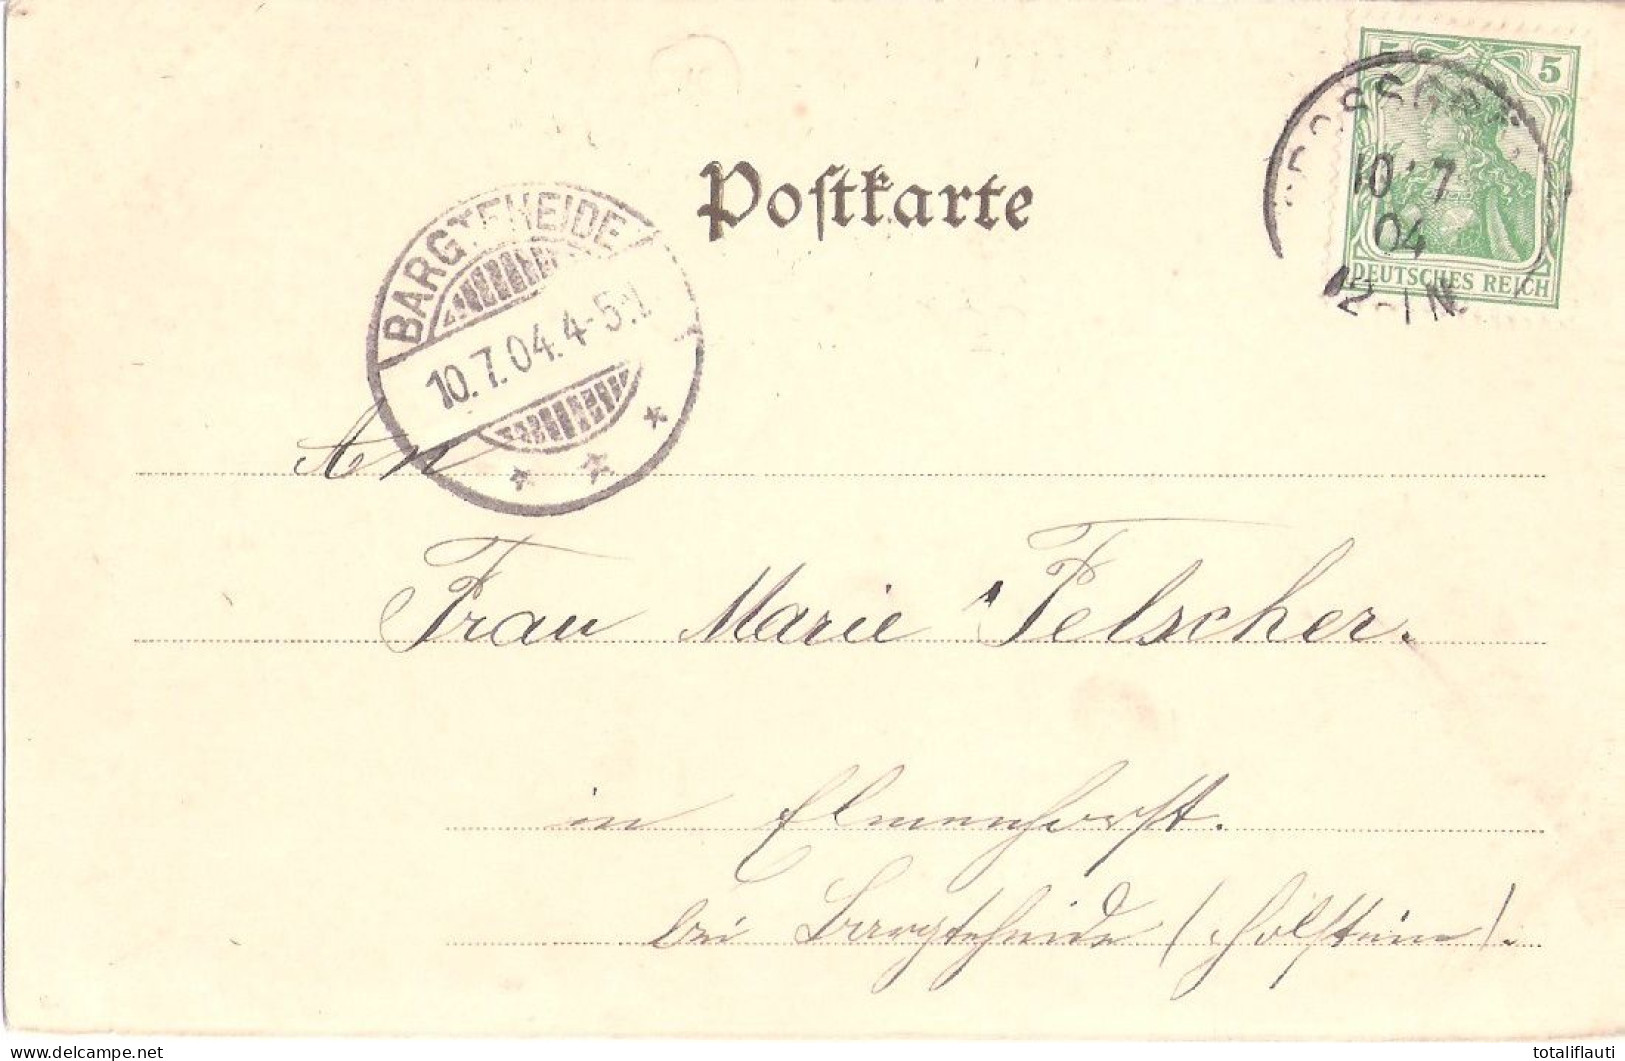 Postkarte
5 5
DEUTSCHES REICH
10 7
04
12-1 N.
BARGTEHEIDE
10.7.04. 4-5 N.
An
Frau Marie Felscher.
in Elmenhorst.
bei Bargteheide (Holstein).
delcampe.net
totaliflauti